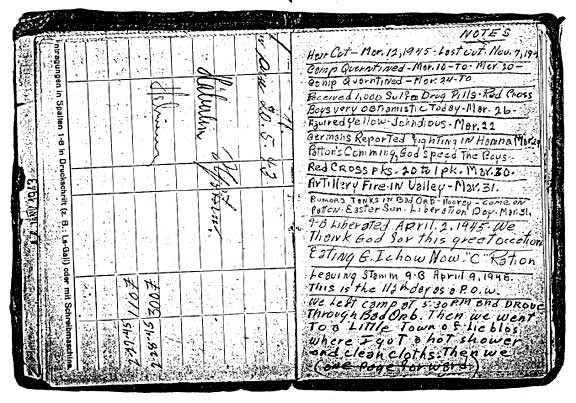 nragungen in Spalten 1-8 in Druckschrift (z. B.: La-Gall) oder mit Schreibmaschine.
20.5.42
NOTES
Hair Cut - Mar. 12, 1945 - Last cut. Nov. 7, 194
Comp Quarntined - Mar. 10 - To - Mar 20 -
Comp Quarntined - Mar. 24 - TO
Received 1,000 Sulfa Drug Pills - Red Cross
Boys very obtamistic Today - Mar. 26 -
Figured Yellow Johndious - Mar. 22
Germans Reported Fighting in Hanna Mar 29
Patton's Comming, God Speed The Boys.
Red Cross pks. 20 to 1 pk. Mar. 30.
Artillery Fire in Valley - Mar. 31.
Rumors Tonks in Bad Orb - Hoorey - come on
Paton. Easter Sun. Liberation Day. Mar. 31.
9-B Liberated APRIL. 2. 1945. We
Thank God for this great occation
Eating G.I chow Now. "C" Ration
Leaving Stamm 9-B April 9, 1945.
This is the day as a P.O.W.
We Left camp at 5:30 PM and Drove
Through Bad Orb. Then we went
To a Little Town of Lieblos
where I got a hot shower
and clean cloths. Then we
(one page forword)